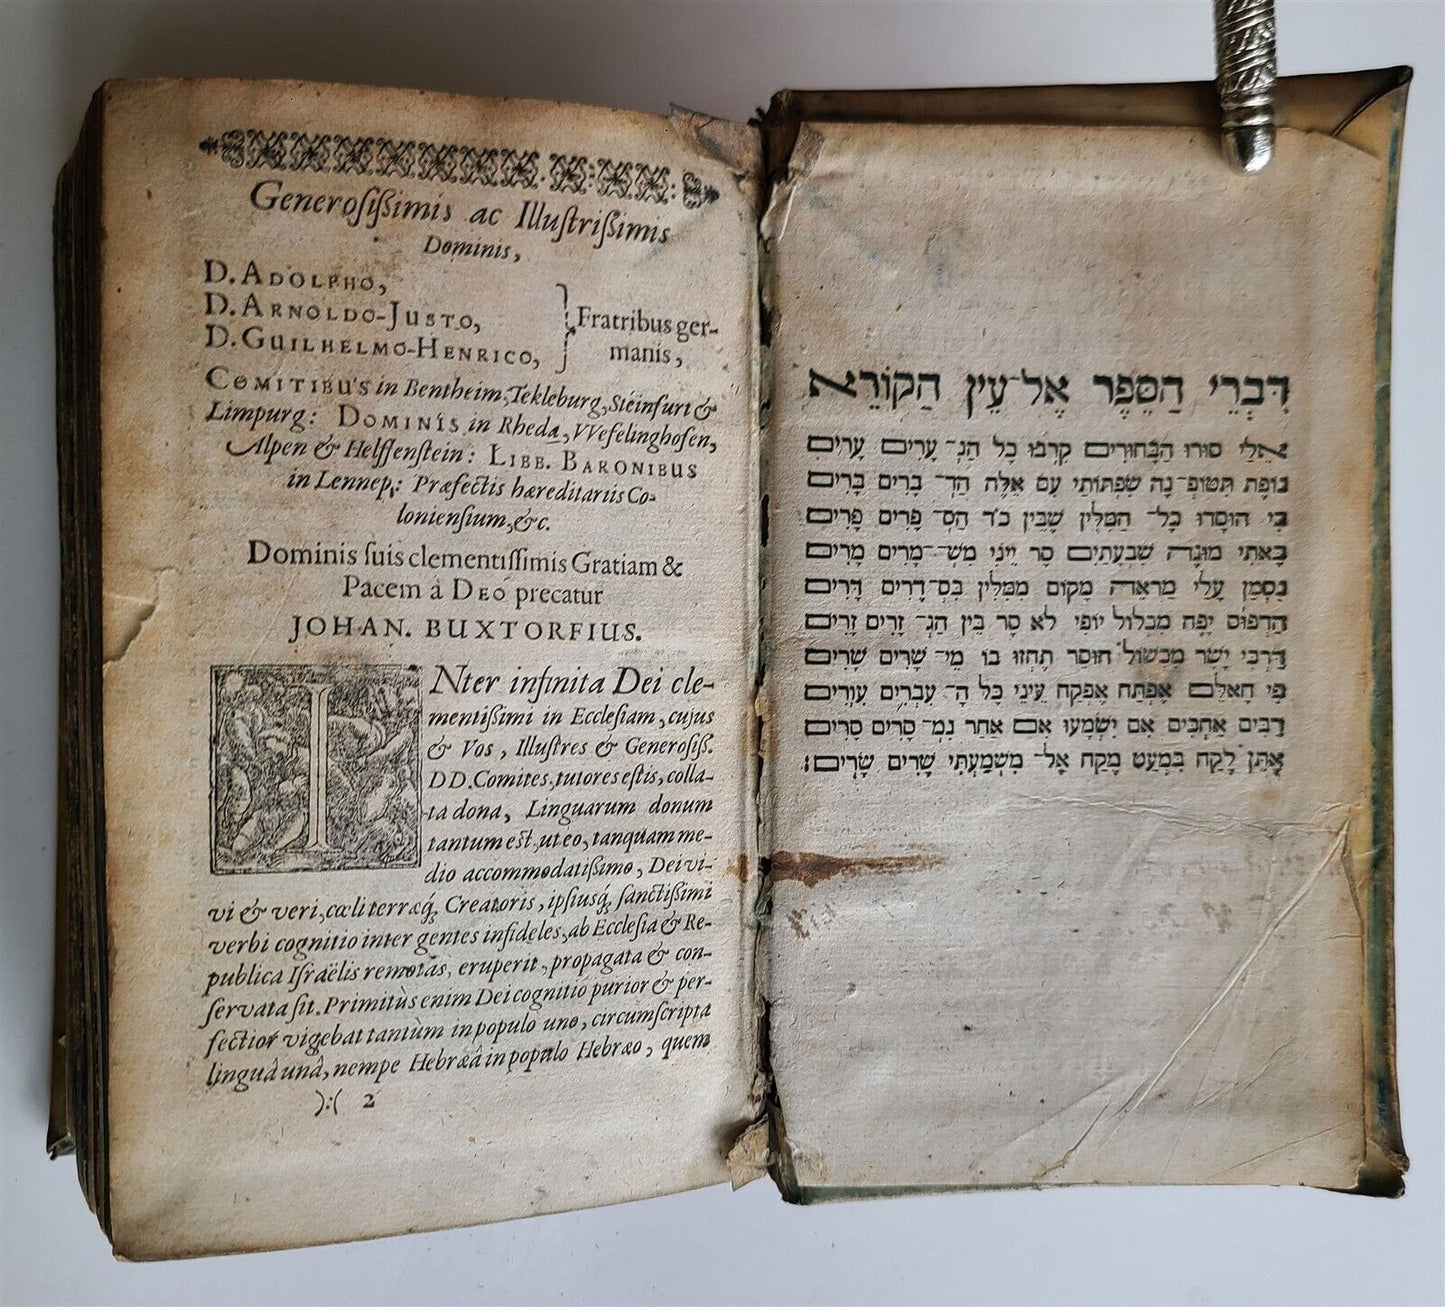 Generosißimis ac Illustrißimis
Dominis,
D. ADOLPHO,
D. ARNOLDO-JUSTO,
D. GUILHELMO-HENRICO,
Fratribus ger-
manis,
COMITIBUS in Bentheim, Tekleburg, Steinfurt &
Limpurg: DOMINIS in Rheda, Wefelinghofen,
Alpen & Helffenstein: LIBB. BARONIBUS
in Lennep: Præfectis hæreditariis Co-
loniensium, &c.
Dominis suis clementissimis Gratiam &
Pacem à DEO precatur
JOHAN. BUXTORFIUS.
INter infinita Dei cle-
mentißimi in Ecclesiam, cujus
& Vos, Illustres & Generosiß.
DD. Comites, tutores estis, colla-
ta dona, Linguarum donum
tantum est, ut eo, tanquam me-
dio accommodatißimo, Dei vi-
vi & veri, cœli terræq́; Creatoris, ipsiusq́; sanctißimi
verbi cognitio inter gentes infideles, ab Ecclesia & Re-
publica Israëlis remotas, eruperit, propagata & con-
servata sit. Primitùs enim Dei cognitio purior & per-
fectior vigebat tantùm in populo uno, circumscripta
linguâ unâ, nempe Hebræâ in populo Hebræo, quem
):( 2
דִּבְרֵי הַסֵּפֶר אֶל־עֵין הַקּוֹרֵא
אֵלַי סוּרוּ הַבַּחוּרִים קִרְבוּ כָל הַנְּ־ עָרִים עָרִים
נוֹפֶת תִּטּוֹפְ־נָה שִׂפְתוֹתַי עִם אֵלֶּה הַדְּ־ בָרִים בָּרִים
כִּי הוּסָרוּ כָּל־ הַמִּלִּין שֶׁבֵּין הַסְּ־ פָרִים פָּרִים
בָּאתִי מוּגָה שִׁבְעָתַיִם סָר יֵינִי מִשְּׁ־מָרִים מָרִים
נִסְמָן עָלַי מַרְאֵה מְקוֹם מִמִּלִּין בִּסְ־דָרִים דָּרִים
הַדְּפוּס יָפֶה מִכְלוֹל יוֹפִי לֹא סָר בֵּין הַגְּ־ זָרִים זָרִים
דַּרְכִּי יָשָׁר מִכְשׁוֹל חוֹסֶר תֶּחְזוּ בוֹ מֵי־ שָׁרִים שָׁרִים
פִּי אֶפְתַּח אֶפְקַח עֵינֵי כָּל הָ־ עִבְרִים עִוְרִים
רַבִּים אַחְכִּים אִם יִשְׁמְעוּ אִם אַחַר נִמְ־ סָרִים סָרִים
אֶתֵּן לֶקַח בִּמְעַט מֶקַח אֶל־ מִשְׁמַעְתִּי שָׁרִים שָׂרִים: